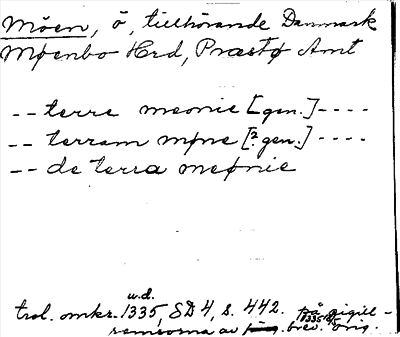 Möen, ö, tillhörande Danmark
Møenbo Hrd, Præstø Amt
-- terre meonie [gen.] ----
-- terram møne [? gen.] ----
-- de terra meønie
u.d.
trol. omkr. 1335, SD 4, s. 442. på sigill-
remsorna av brev. 1335 orig.